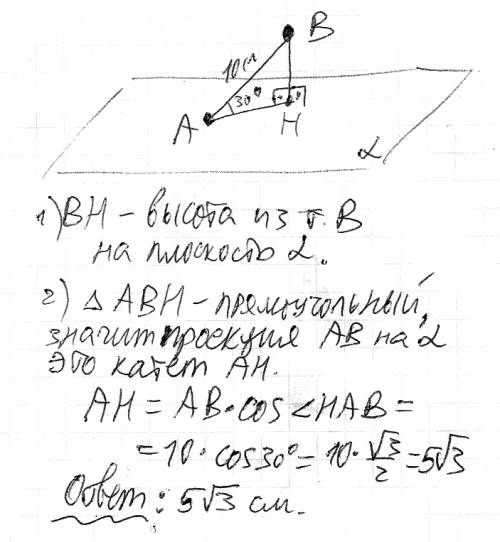 B
10 см
30°
A
H
α
1) BH – высота из т. B
на плоскость α.
2) △ ABH – прямоугольный,
значит проекция AB на α
это катет AH.
AH = AB · cos ∠HAB =
= 10 · cos 30° = 10 · √3/2 = 5√3
Ответ: 5√3 см.